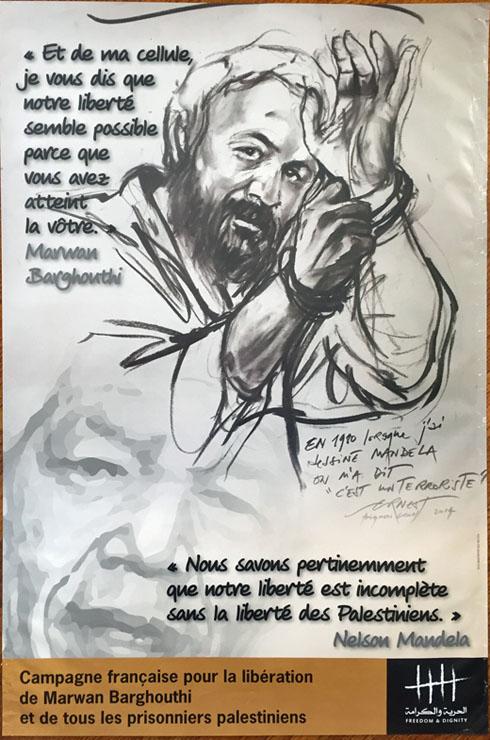 « Et de ma cellule,
je vous dis que
notre liberté
semble possible
parce que
vous avez
atteint
la vôtre. »
Marwan
Barghouthi
EN 1980 lorsque j'ai
dessiné MANDELA
ON M'A DIT
"C'EST UN TERRORISTE"
ERNEST
« Nous savons pertinemment
que notre liberté est incomplète
sans la liberté des Palestiniens. »
Nelson Mandela
Campagne française pour la libération
de Marwan Barghouthi
et de tous les prisonniers palestiniens
الحرية والكرامة
FREEDOM & DIGNITY